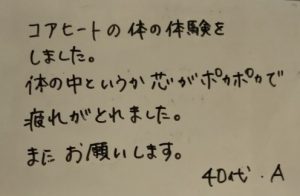 コアヒートの体の体験を
しました。
体の中というか芯がポカポカで
疲れがとれました。
またお願いします。
40代.A